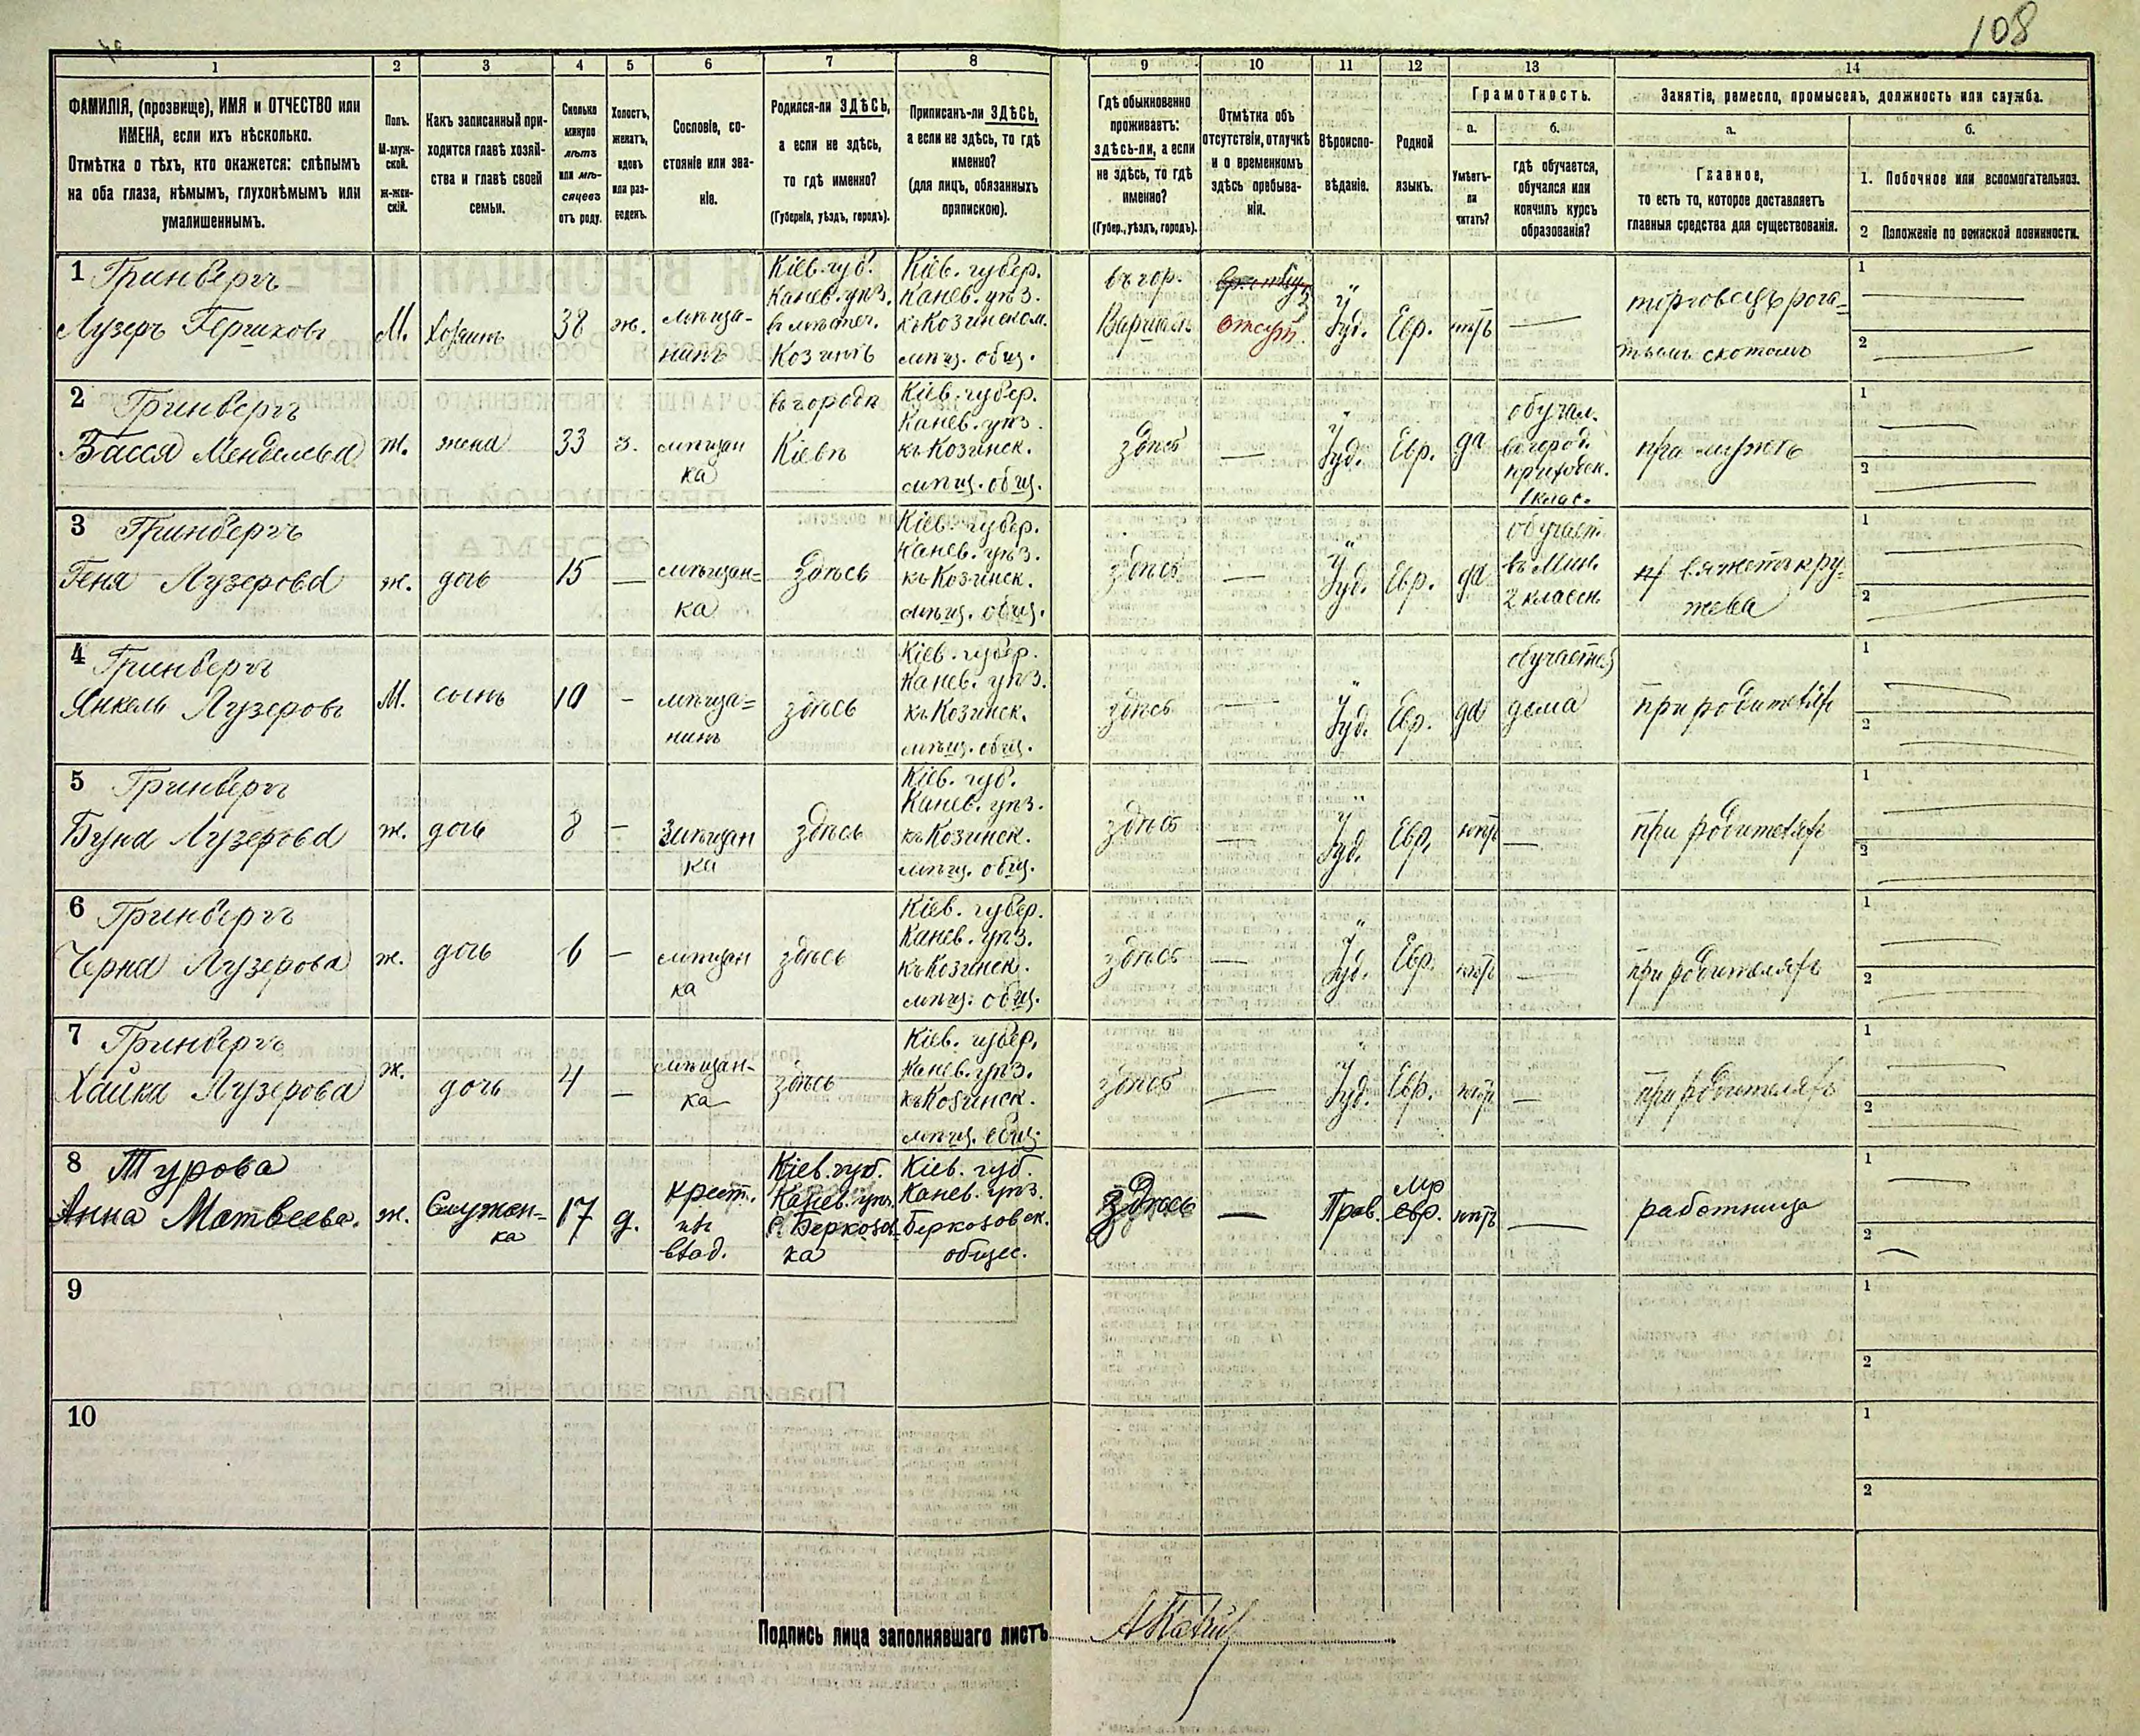 108
1 2 3 4 5 6 7 8 9 10 11 12 13 14
ФАМИЛІЯ, (прозвище), ИМЯ и ОТЧЕСТВО или
ИМЕНА, если ихъ нѣсколько.
Отмѣтка о тѣхъ, кто окажется: слѣпымъ
на оба глаза, нѣмымъ, глухонѣмымъ или
умалишеннымъ.
Полъ.
М-муж-
ской.
ж-жен-
скій.
Какъ записанный при-
ходится главѣ хозяй-
ства и главѣ своей
семьи.
Сколько
минуло
лѣтъ
или мѣ-
сяцевъ
отъ роду.
Холостъ,
женатъ,
вдовъ
или раз-
веденъ.
Сословіе, со-
стояніе или зва-
ніе.
Родился-ли ЗДѢСЬ,
а если не здѣсь,
то гдѣ именно?
(Губернія, уѣздъ, городъ).
Приписанъ-ли ЗДѢСЬ,
а если не здѣсь, то гдѣ
именно?
(для лицъ, обязанныхъ
припискою).
Гдѣ обыкновенно
проживаетъ:
здѣсь-ли, а если
не здѣсь, то гдѣ
именно?
(Губер., уѣздъ, городъ).
Отмѣтка объ
отсутствіи, отлучкѣ
и о временномъ
здѣсь пребыва-
ніи.
Вѣроиспо-
вѣданіе.
Родной
языкъ.
Грамотность.
а.
Умѣетъ-
ли
читать?
б.
Гдѣ обучается,
обучался или
кончилъ курсъ
образованія?
Занятіе, ремесло, промыселъ, должность или служба.
а.
Главное,
то есть то, которое доставляетъ
главныя средства для существованія.
б.
1. Побочное или вспомогательное.
2 Положеніе по воинской повинности.
1 Гринбергъ
Лузеръ Гершковъ
М.
Хозяинъ
38
ж.
мѣща-
нинъ
Кіев. губ.
Канев. уѣз.
въ мѣстеч.
Козинѣ
Кіев. губер.
Канев. уѣз.
къ Козинском.
мѣщ. общ.
въ гор.
отсут.
Іуд.
Евр.
нѣтъ
—
торговецъ рога-
тымъ скотомъ
1
2
2 Гринбергъ
Басся Менделева
ж.
жена
33
з.
мѣщан
ка
въ городѣ
Кіевѣ
Кіев. губер.
Канев. уѣз.
къ Козинск.
мѣщ. общ.
здѣсь
—
Іуд.
Евр.
да
обучал.
в город.
приходск.
1 клас.
при мужѣ
1
2
3 Гринбергъ
Геня Лузерова
ж.
дочь
15
—
мѣщан=
ка
здѣсь
Кіев. губер.
Канев. уѣз.
къ Козинск.
мѣщ. общ.
здѣсь
—
Іуд.
Евр.
да
обучает.
въ Мин.
2 классн.
вяжетъ кру-
жева
1
2
4 Гринбергъ
Янкель Лузеровъ
М.
сынъ
10
-
мѣща=
нинъ
здѣсь
Кіев. губер.
Канев. уѣз.
къ Козинск.
мѣщ. общ.
здѣсь
—
Іуд.
Евр.
да
обучается
дома
при родителяхъ
1
2
5 Гринбергъ
Буна Лузерова
ж.
дочь
8
—
мѣщан
ка
здѣсь
Кіев. губ.
Канев. уѣз.
къ Козинск.
мѣщ. общ.
здѣсь
—
Іуд.
Евр.
нѣтъ
—
при родителяхъ
1
2
6 Гринбергъ
Черна Лузерова
ж.
дочь
6
—
мѣщан
ка
здѣсь
Кіев. губер.
Канев. уѣз.
къ Козинск.
мѣщ. общ.
здѣсь
—
Іуд.
Евр.
нѣтъ
—
при родителяхъ
1
2
7 Гринбергъ
Хайка Лузерова
ж.
дочь
4
—
мѣщан-
ка
здѣсь
Кіев. губер.
Канев. уѣз.
къ Козинск.
мѣщ. общ.
здѣсь
—
Іуд.
Евр.
нѣтъ
—
при родителяхъ
1
2
8 Турова
Анна Матвеева.
ж.
Служан-
ка
17
д.
крест.
изъ
влад.
Кіев. губ.
Канев. уѣз.
С. Беркозов-
ка
Кіев. губ.
Канев. уѣз.
Беркозовск.
общес.
здѣсь
—
Прав.
мр
евр.
нѣтъ
—
работница
1
2
9
1
2
10
1
2
Подпись лица заполнявшаго листъ